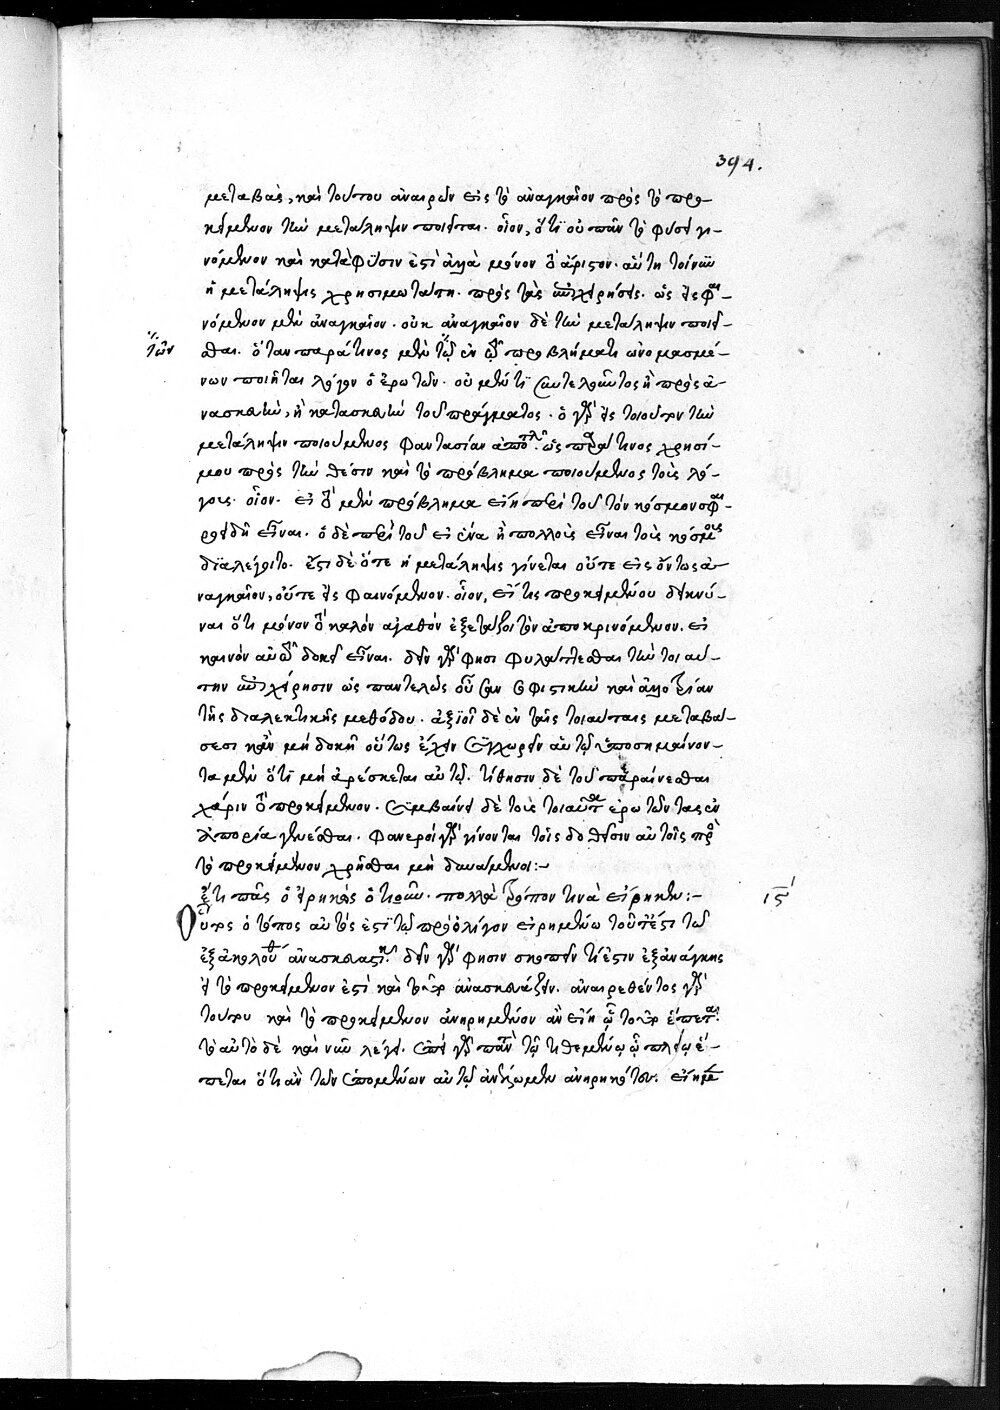 394.
μεταβὰς, καὶ τούτου ἀναιρῶν εἰς τὸ ἀναγκαῖον πρὸς τὸ προ-
κείμενον τὴν μετάληψιν ποιεῖται. οἷον, ὅτι οὐ πᾶν τὸ φύσει γι-
νόμενον καὶ κατὰ φύσιν ἐστὶ ἀλλὰ μόνον τὸ ἄριστον. αὕτη τοίνυν
ἡ μετάληψις χρησιμωτάτη. πρὸς τὰς ἐπιχειρήσεις. ὡς εἰς φαι-
νόμενον μὲν ἀναγκαῖον. οὐκ ἀναγκαῖον δὲ τὴν μετάληψιν ποιεῖ-
τῶν
σθαι. ὅταν παρά τινος μὲν τῶν ἐν τῷ προβλήματι ὠνομασμέ-
νων ποιῆται λόγον ὁ ἐρωτῶν. οὐ μέν τι συντελοῦντος ἢ πρὸς ἀ-
νασκευὴν, ἢ κατασκευὴν τοῦ πράγματος. ὁ γὰρ εἰς τοιοῦτον τὴν
μετάληψιν ποιούμενος φαντασίαν ὡς παρά τινος χρησί-
μου πρὸς τὴν θέσιν καὶ τὸ πρόβλημα ποιούμενος τοὺς λό-
γους. οἷον. εἰ τὸ μὲν πρόβλημα εἴη περὶ τοῦ τὸν κόσμον σφαι-
ροειδῆ εἶναι. ὁ δὲ περὶ τοῦ εἰ ἕνα ἢ πολλοὺς εἶναι τοὺς κόσμους
διαλέγοιτο. ἔστι δὲ ὅτε ἡ μετάληψις γίνεται οὔτε εἰς ὄντως ἀ-
ναγκαῖον, οὔτε εἰς φαινόμενον. οἷον, εἴ τις προκειμένου δεικνύ-
ναι ὅτι μόνον τὸ καλὸν ἀγαθὸν ἐξετάζοι τὸν ἀποκρινόμενον. εἰ
δοκεῖ εἶναι. δεῖν γάρ φησι φυλάττεσθαι τὴν τοιαύ-
την ἐπιχείρησιν ὡς παντελῶς οὖσαν σοφιστικὴν καὶ ἀλλοτρίαν
τῆς διαλεκτικῆς μεθόδου. ἀξιοῖ δὲ ἐν ταῖς τοιαύταις μεταβά-
σεσι κἂν μὴ δοκῇ οὕτως ἔχειν συγχωρεῖν αὐτῷ ὑποσημαίνον-
τα μὲν ὅτι μὴ ἀρέσκεται αὐτῷ. τίθησιν δὲ τοῦ παραίνεσθαι
χάριν τὸ προκείμενον. συμβαίνει δὲ τοῖς τοιαῦτα ἐρωτῶντας ἐν
ἀπορία γενέσθαι. φανεροὶ γὰρ γίνονται τοῖς δοθεῖσιν αὐτοῖς πρὸς
τὸ προκείμενον χρῆσθαι μὴ δυνάμενοι:-
ἔτι πᾶς ὁ εἰρηκὼς ὁτιοῦν. πολλὰ τρόπον τινὰ εἴρηκεν:-
ιϛ΄
Οὗτος ὁ τόπος αὐτός ἐστι τῷ πρὸ ὀλίγον εἰρημένω τουτέστι τῶ
ἐξ ἀκολούθου ἀνασκευαστικῷ. δεῖν γάρ φησιν σκοπεῖν τί ἐστιν ἐξ ἀνάγκης
εἰ τὸ προκείμενον ἐστὶ καὶ τοῦτο ἀνασκευάζειν. ἀναιρεθέντος γὰρ
τούτου καὶ τὸ προκείμενον ἀνῃρημένον ἂν εἴη ᾧ τοῦτο ἕπεται.
τὸ αὐτὸ δὲ καὶ νῦν λέγει. ἐπεὶ γὰρ παντὶ τῷ τιθεμένῳ πλείω ἕ-
πεται ὅτι ἂν τῶν ἑπομένων αὐτῷ ἀνέλωμεν ἀνῃρηκότων. εἰ ἡμε